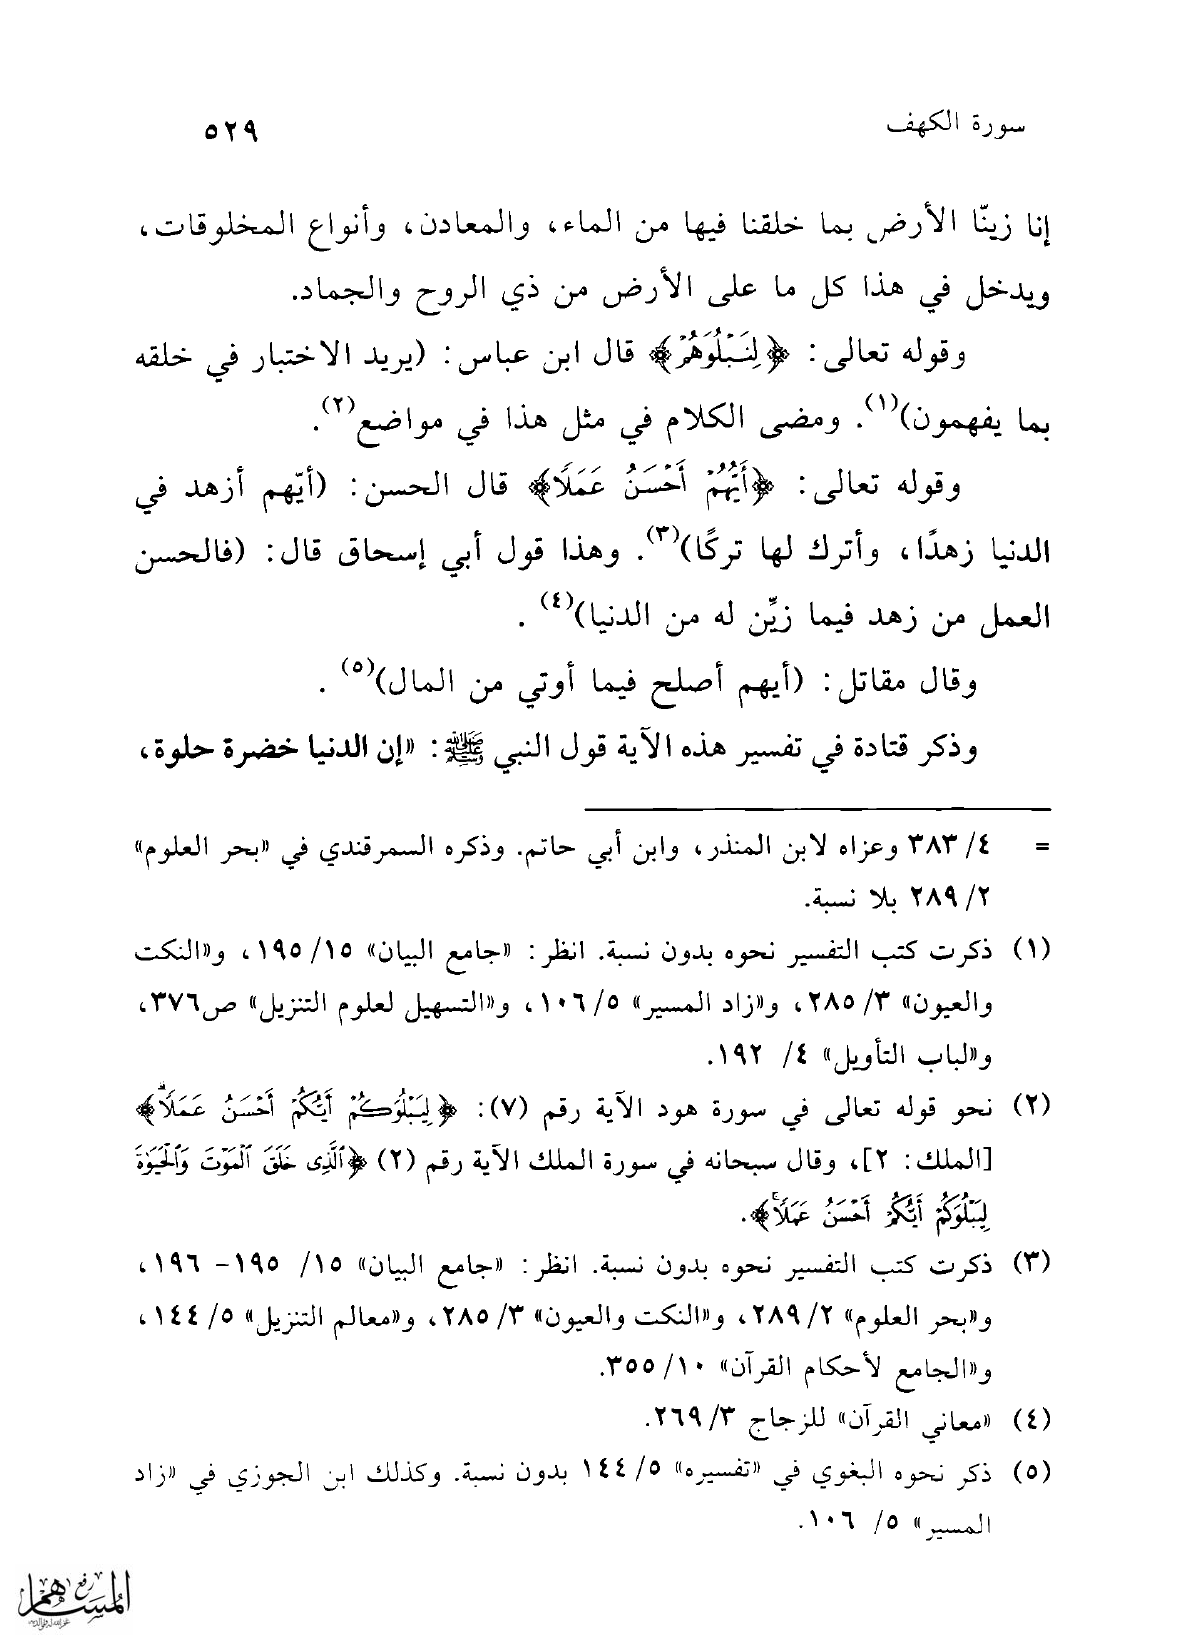 سورة الكهف ٥٢٩
إنا زينّا الأرض بما خلقنا فيها من الماء، والمعادن، وأنواع المخلوقات،
ويدخل في هذا كل ما على الأرض من ذي الروح والجماد.
وقوله تعالى: ﴿لِنَبْلُوَهُمْ﴾ قال ابن عباس: (يريد الاختبار في خلقه
بما يفهمون)(١). ومضى الكلام في مثل هذا في مواضع(٢).
وقوله تعالى: ﴿أَيُّهُمْ أَحْسَنُ عَمَلًا﴾ قال الحسن: (أيّهم أزهد في
الدنيا زهدًا، وأترك لها تركًا)(٣). وهذا قول أبي إسحاق قال: (فالحسن
العمل من زهد فيما زيِّن له من الدنيا)(٤) .
وقال مقاتل: (أيهم أصلح فيما أوتي من المال)(٥) .
وذكر قتادة في تفسير هذه الآية قول النبي ﷺ: «إن الدنيا خضرة حلوة،
= ٤/ ٣٨٣ وعزاه لابن المنذر، وابن أبي حاتم. وذكره السمرقندي في «بحر العلوم»
٢/ ٢٨٩ بلا نسبة.
(١) ذكرت كتب التفسير نحوه بدون نسبة. انظر: «جامع البيان» ١٥/ ١٩٥، و«النكت
والعيون» ٣/ ٢٨٥، و«زاد المسير» ٥/ ١٠٦، و«التسهيل لعلوم التنزيل» ص٣٧٦،
و«لباب التأويل» ٤/ ١٩٢.
(٢) نحو قوله تعالى في سورة هود الآية رقم (٧): ﴿لِيَبْلُوَكُمْ أَيُّكُمْ أَحْسَنُ عَمَلًاۗ﴾
[الملك: ٢]، وقال سبحانه في سورة الملك الآية رقم (٢) ﴿ٱلَّذِى خَلَقَ ٱلْمَوْتَ وَٱلْحَيَوٰةَ
لِيَبْلُوَكُمْ أَيُّكُمْ أَحْسَنُ عَمَلًاۚ﴾.
(٣) ذكرت كتب التفسير نحوه بدون نسبة. انظر: «جامع البيان» ١٥/ ١٩٥- ١٩٦،
و«بحر العلوم» ٢/ ٢٨٩، و«النكت والعيون» ٣/ ٢٨٥، و«معالم التنزيل» ٥/ ١٤٤،
و«الجامع لأحكام القرآن» ١٠/ ٣٥٥.
(٤) «معاني القرآن» للزجاج ٣/ ٢٦٩.
(٥) ذكر نحوه البغوي في «تفسيره» ٥/ ١٤٤ بدون نسبة. وكذلك ابن الجوزي في «زاد
المسير» ٥/ ١٠٦.